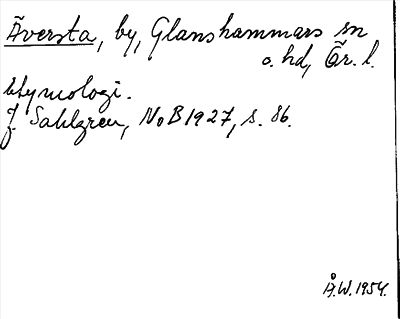 Äversta, by, Glanshammars sn
o. hd, Ör. l.
Etymologi.
J. Sahlgren, NoB 1927, s. 86.
Å.W. 1954.